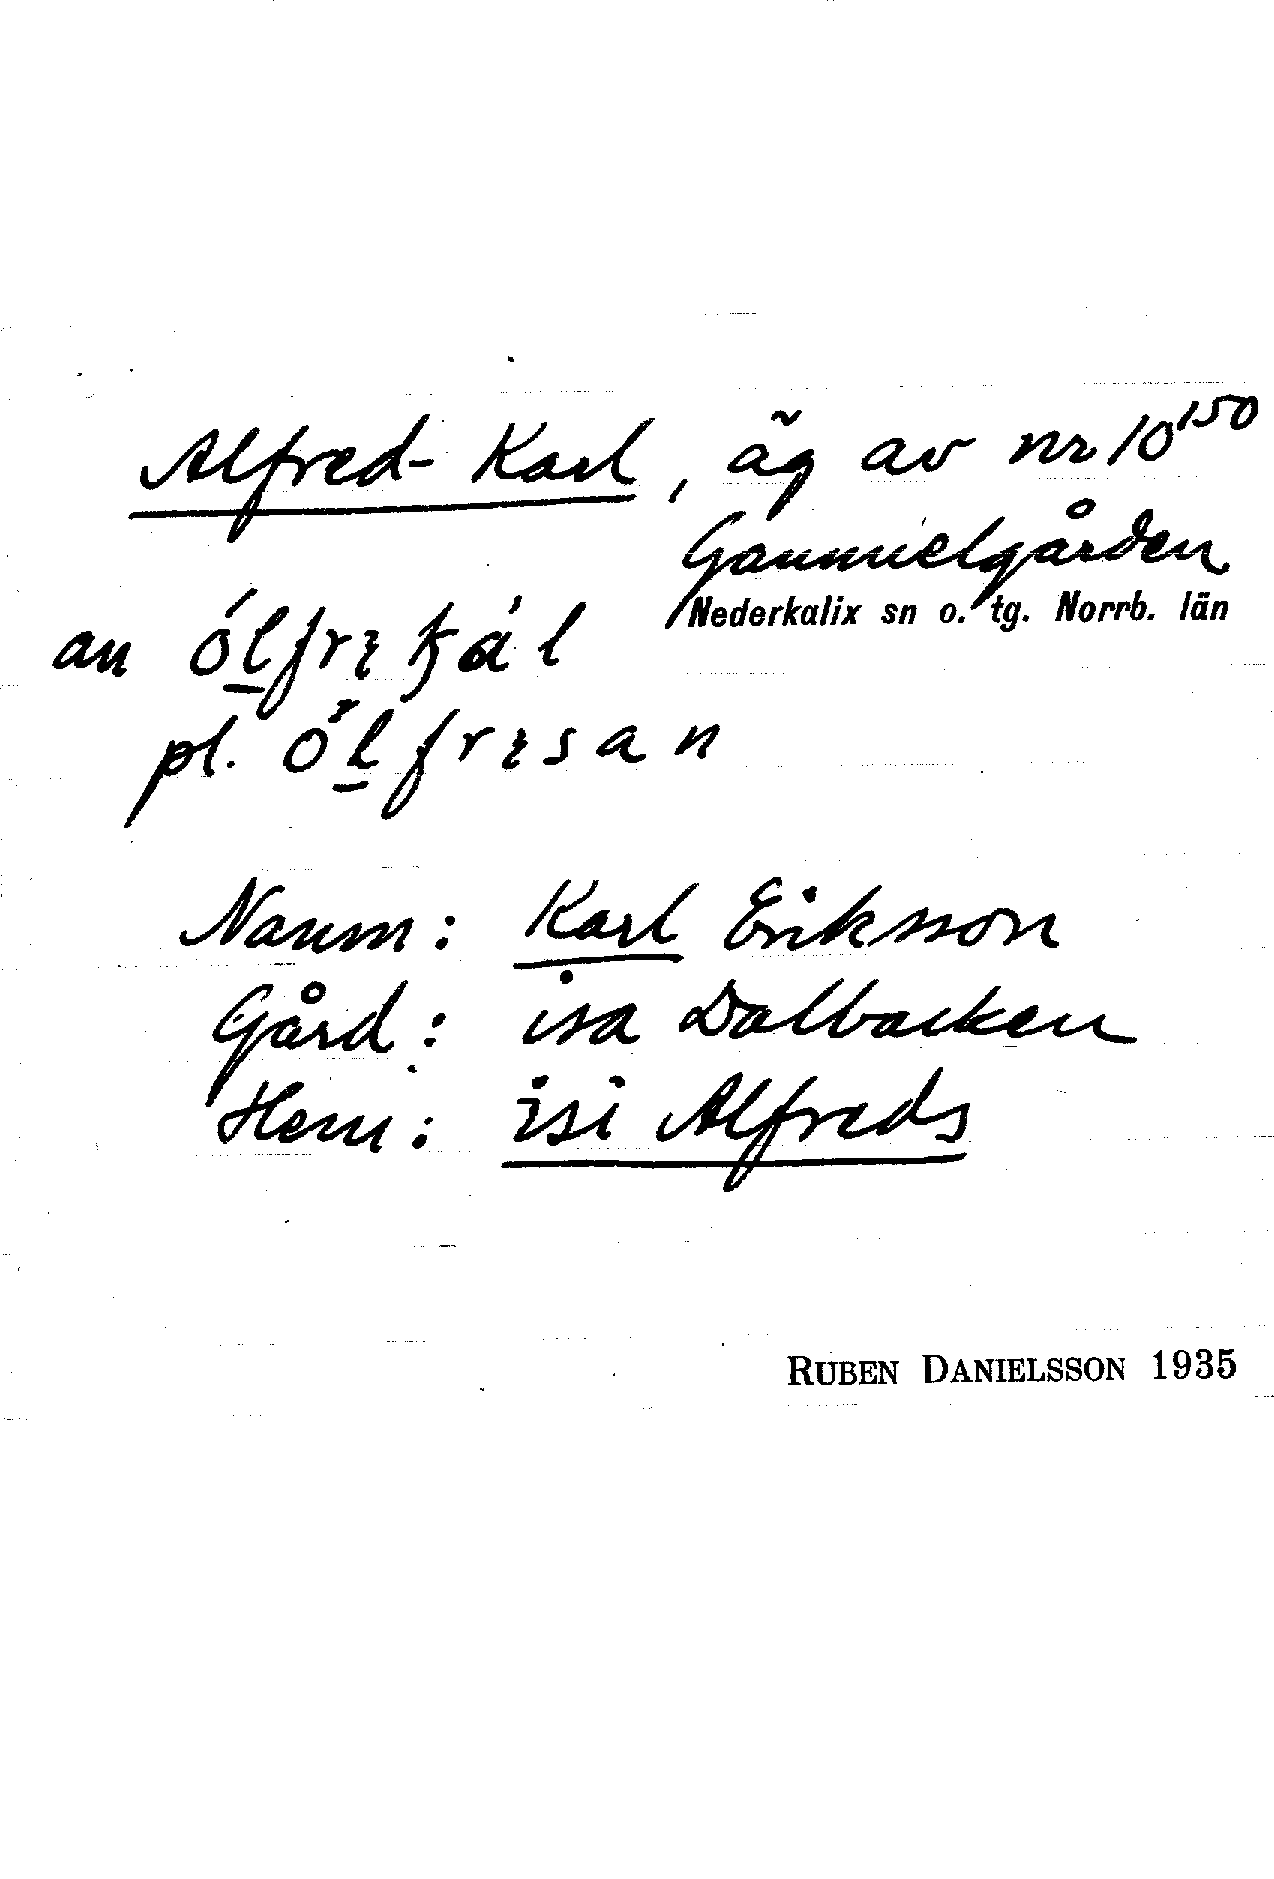 Alfred-Karl, äg av nr 10¹⁵⁰
Gammelgården
Nederkalix sn o. tg. Norrb. län
an
pl.
Namn: Karl Eriksson
Gård: isa Dalbacken
Hem: isi Alfreds
RUBEN DANIELSSON 1935